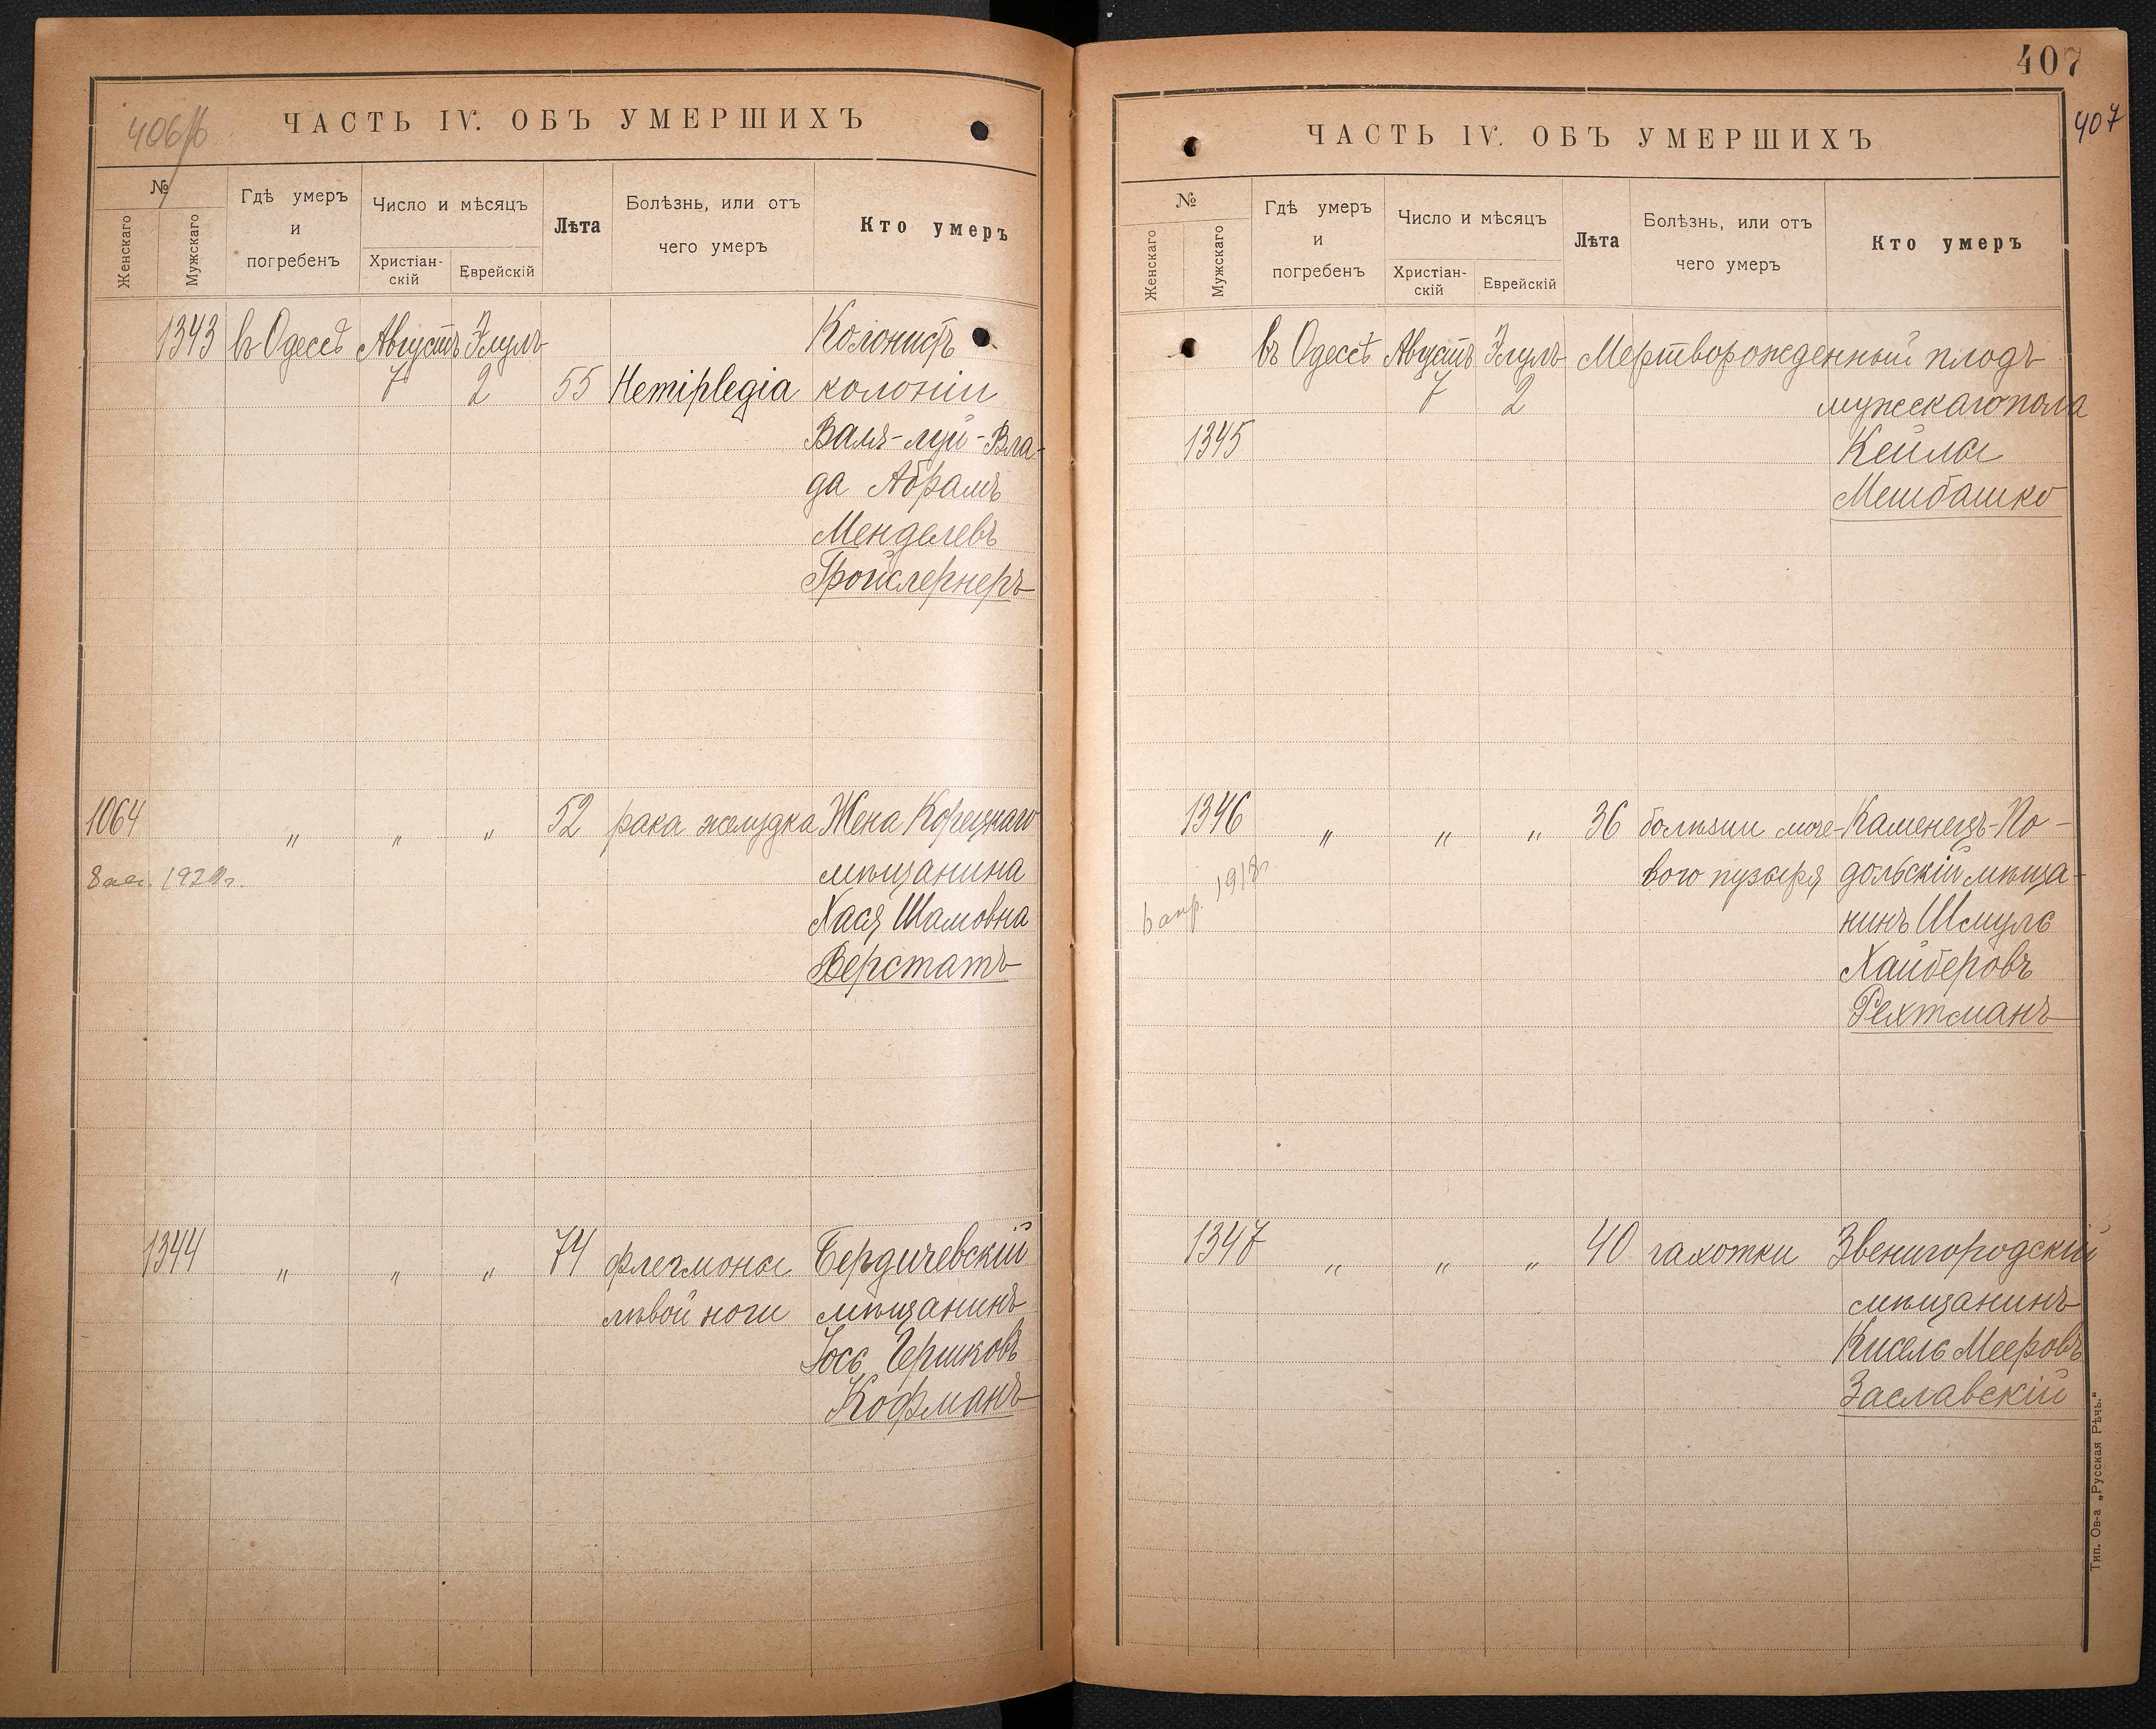 406/б
ЧАСТЬ IV. ОБЪ УМЕРШИХЪ
№
Женскаго
Мужскаго
Гдѣ умеръ
и
погребенъ
Число и мѣсяцъ
Христіан-
скій
Еврейскій
Лѣта
Болѣзнь, или отъ
чего умеръ
Кто умеръ
1343 въ Одессѣ Августъ Элулъ Колонистъ
7 2 55 Hemiplegia колоніи
Валя-луй-Вла-
да Абрамъ
Менделевъ
Гройслернеръ
1064 " " " 52 рака желудка Жена Корецкаго
мѣщанина
Хася Шамовна
Верстатъ
1344 " " " 74 флегмоны Бердичевскій
лѣвой ноги мѣщанинъ
Іось Гершковъ
Кофманъ
407
407
ЧАСТЬ IV. ОБЪ УМЕРШИХЪ
№
Женскаго
Мужскаго
Гдѣ умеръ
и
погребенъ
Число и мѣсяцъ
Христіан-
скій
Еврейскій
Лѣта
Болѣзнь, или отъ
чего умеръ
Кто умеръ
въ Одессѣ Августъ Элулъ Мертворожденный плодъ
7 2 мужескаго пола
1345 Кейлы
Мешбашко
1346 " " " 36 болѣзни моче- Каменецъ-По-
вого пузыря дольскій мѣща-
6 апр. 1918г. нинъ Шмуль
Хайберовъ
Рехтманъ
1347 " " " 40 чахотки Звенигородскій
мѣщанинъ
Кисель Мееровъ
Заславскій
Тип. Ов-а „Русская Рѣчь."